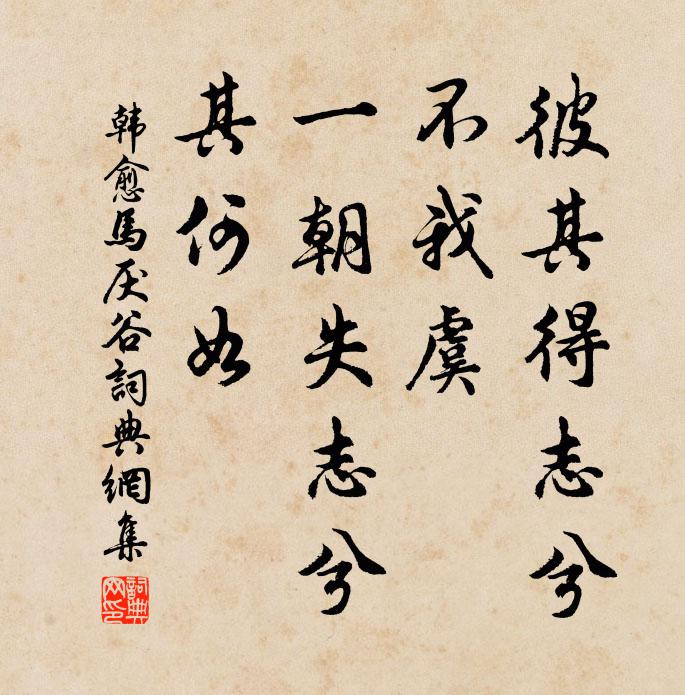 彼其得志兮
不我虞
一朝失志兮
其何如
韩愈馬厌谷詞典網集
詞典
网印